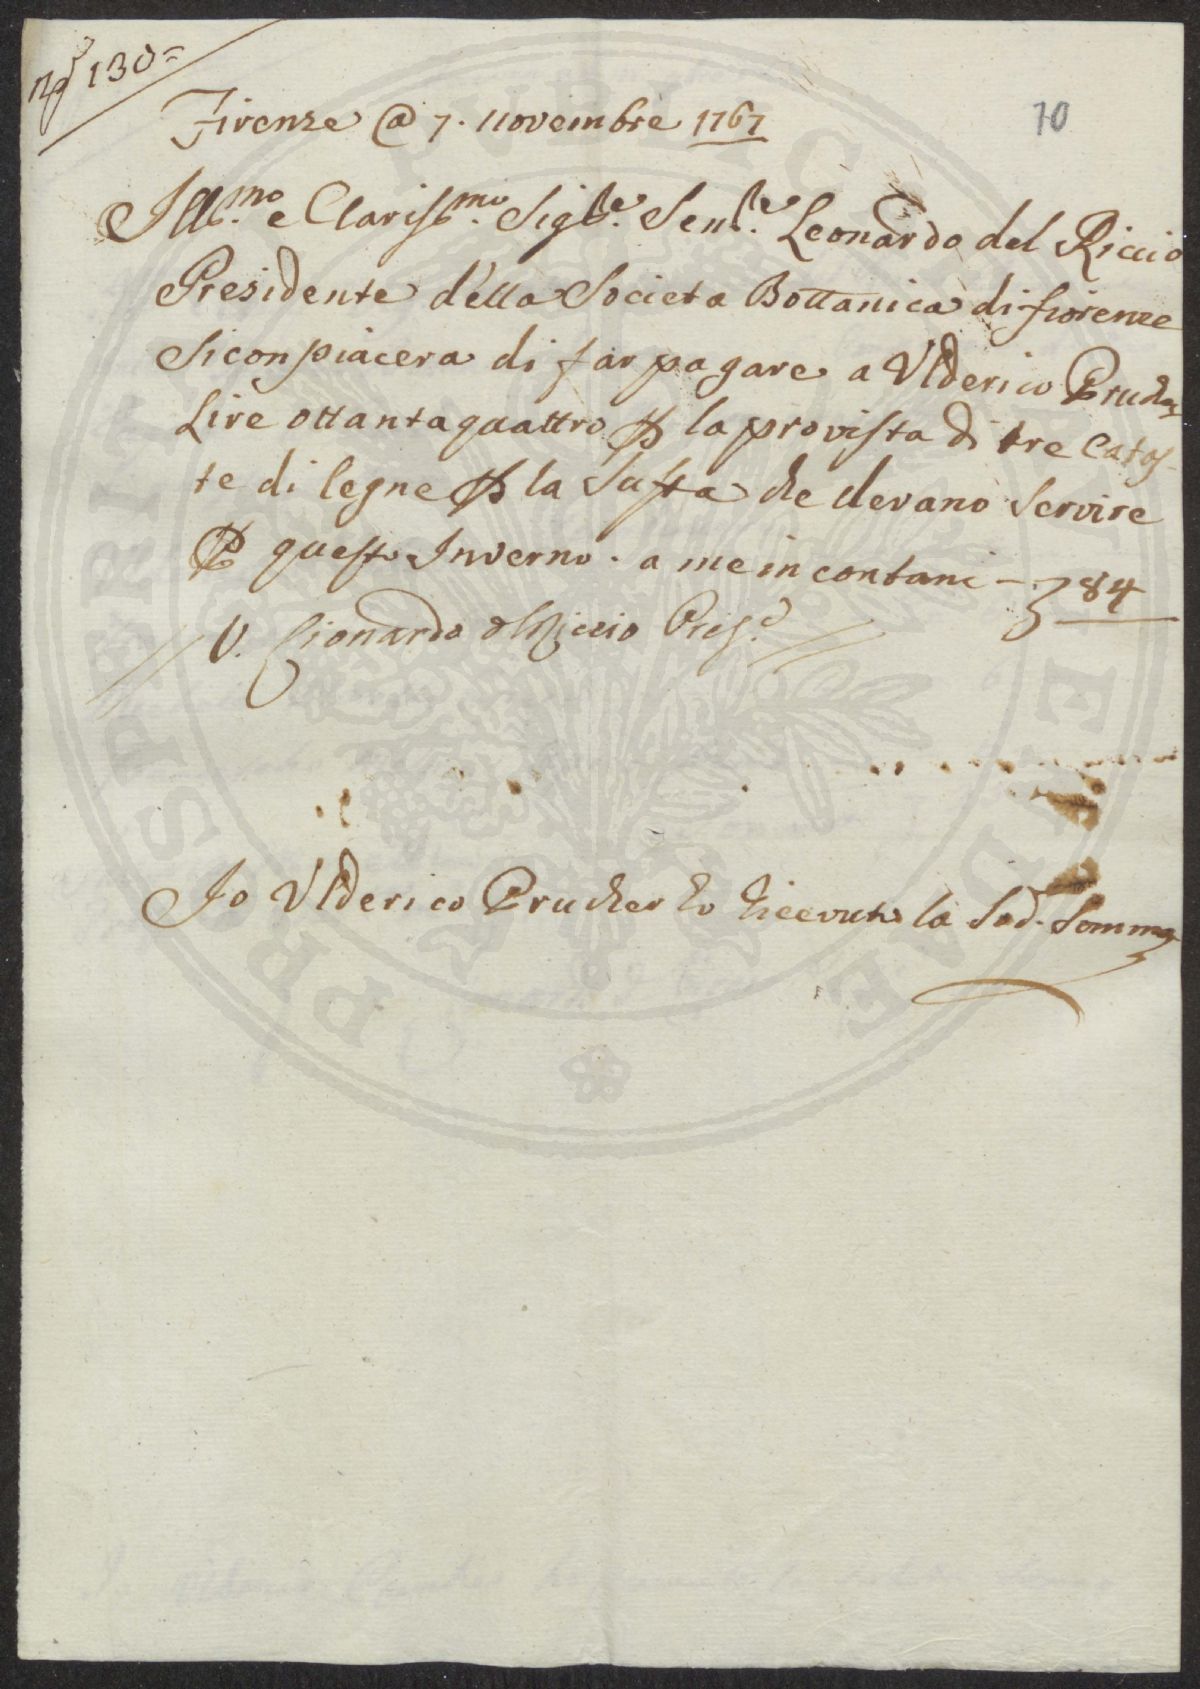 N.o 130=
70
Firenze @ 7. novembre 1767
Ill.mo e Clariss.mo Sig.re Sen.re Leonardo del Riccio
Presidente della Societa Bottanica di fiorenze
Si conpiacera di far pagare a Vlderico Prucher
Lire ottantaquattro p la provista di tre catas-
te di legne p la Stufa che devano Servire
P questo Inverno. a me in contani - 84
V. Lionardo del Riccio Pres.e
Io Vlderico Prucher ho ricevuto la Sad. Somma
PROSPERITATI PUBLICAE AUGENDAE